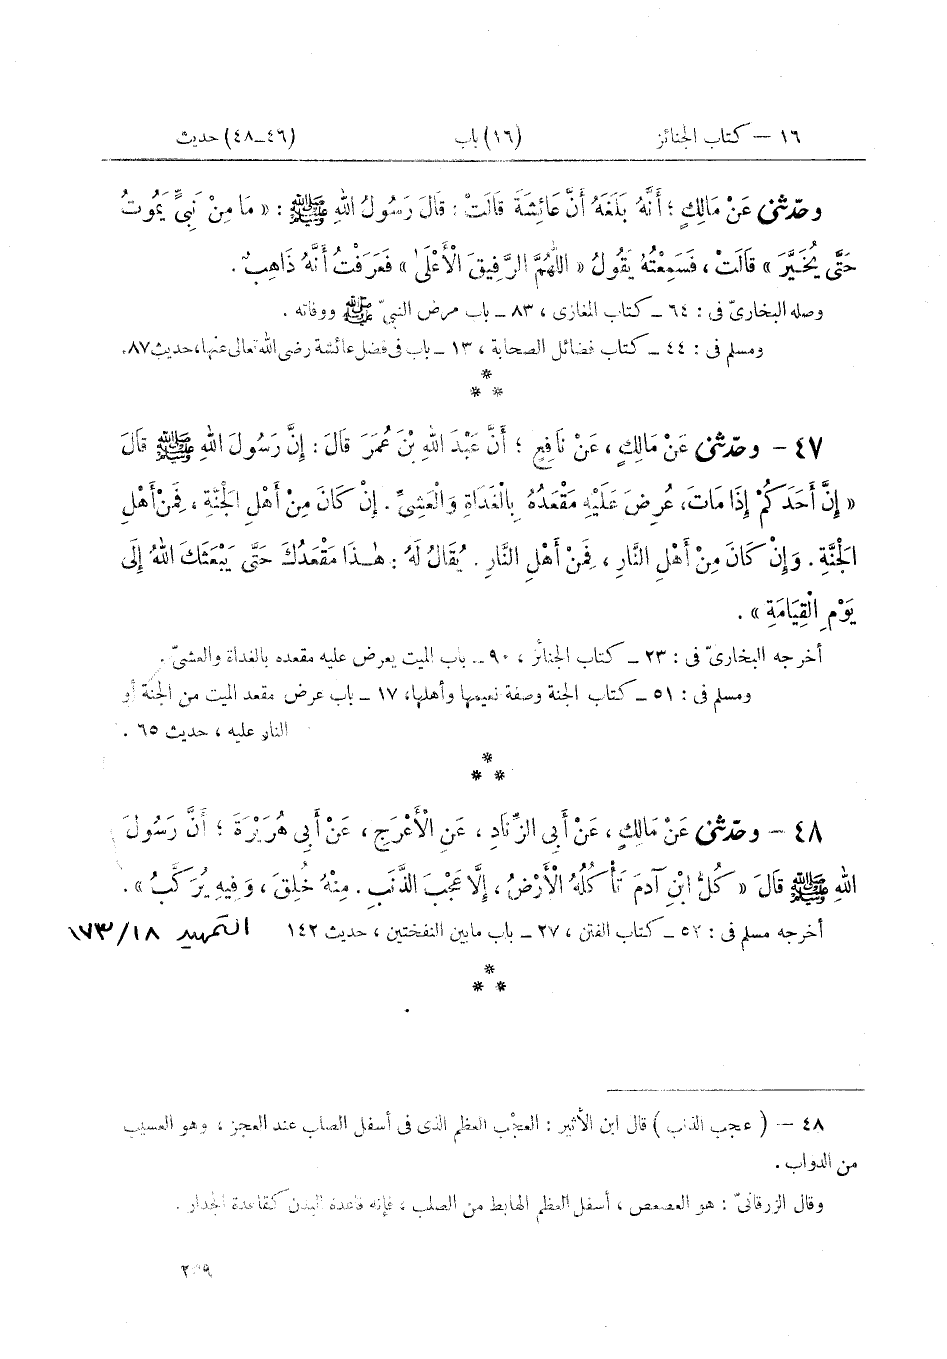 ١٦ – كتاب الجنائز (١٦) باب (٤٦–٤٨) حديث
وحدّثنى عَنْ مَالِكٍ ؛ أَنَّهُ بَلَغَهُ أَنَّ عَائِشَةَ قَالَتْ : قَالَ رَسُولُ اللهِ ﷺ : « مَا مِنْ نَبِيٍّ يَمُوتُ
حَتَّى يُخَيَّرَ » قَالَتْ ، فَسَمِعْتُهُ يَقُولُ « اللَّهُمَّ الرَّفِيقَ الْأَعْلَى » فَعَرَفْتُ أَنَّهُ ذَاهِبٌ .
وصله البخارىّ فى : ٦٤ – كتاب المغازى ، ٨٣ – باب مرض النبيّ ﷺ ووفاته .
ومسلم فى : ٤٤ – كتاب فضائل الصحابة ، ١٣ – باب فى فضل عائشة رضى الله تعالى عنها، حديث ٨٧.
*
* *
٤٧ – وحدّثنى عَنْ مَالِكٍ ، عَنْ نَافِعٍ ؛ أَنَّ عَبْدَ اللهِ بْنَ عُمَرَ قَالَ : إِنَّ رَسُولَ اللهِ ﷺ قَالَ
« إِنَّ أَحَدَكُمْ إِذَا مَاتَ، عُرِضَ عَلَيْهِ مَقْعَدُهُ بِالْغَدَاةِ وَالْعَشِيِّ . إِنْ كَانَ مِنْ أَهْلِ الْجَنَّةِ ، فَمِنْ أَهْلِ
الْجَنَّةِ . وَإِنْ كَانَ مِنْ أَهْلِ النَّارِ ، فَمِنْ أَهْلِ النَّارِ . يُقَالُ لَهُ : هٰذَا مَقْعَدُكَ حَتَّى يَبْعَثَكَ اللهُ إِلَى
يَوْمِ الْقِيَامَةِ » .
أخرجه البخارىّ فى : ٢٣ – كتاب الجنائز ، ٩٠ – باب الميت يعرض عليه مقعده بالغداة والعشىّ .
ومسلم فى : ٥١ – كتاب الجنة وصفة نعيمها وأهلها، ١٧ – باب عرض مقعد الميت من الجنة أو
النار عليه ، حديث ٦٥ .
*
* *
٤٨ – وحدّثنى عَنْ مَالِكٍ ، عَنْ أَبِي الزِّنَادِ ، عَنِ الْأَعْرَجِ ، عَنْ أَبِي هُرَيْرَةَ ؛ أَنَّ رَسُولَ
اللهِ ﷺ قَالَ « كُلُّ ابْنِ آدَمَ تَأْكُلُهُ الْأَرْضُ ، إِلَّا عَجْبَ الذَّنَبِ . مِنْهُ خُلِقَ ، وَفِيهِ يُرَكَّبُ » .
أخرجه مسلم فى : ٥٢ – كتاب الفتن ، ٢٧ – باب مابين النفختين ، حديث ١٤٢ التمهيد ١٧٣/١٨
*
* *
٤٨ – ( عجب الذنب ) قال ابن الأثير : العجْب العظم الذى فى أسفل الصلب عند العجز ، وهو العسيب
من الدواب .
وقال الزرقانىّ : هو العصعص ، أسفل العظم الهابط من الصلب ، فإنه قاعدة البدن كقاعدة الجدار .